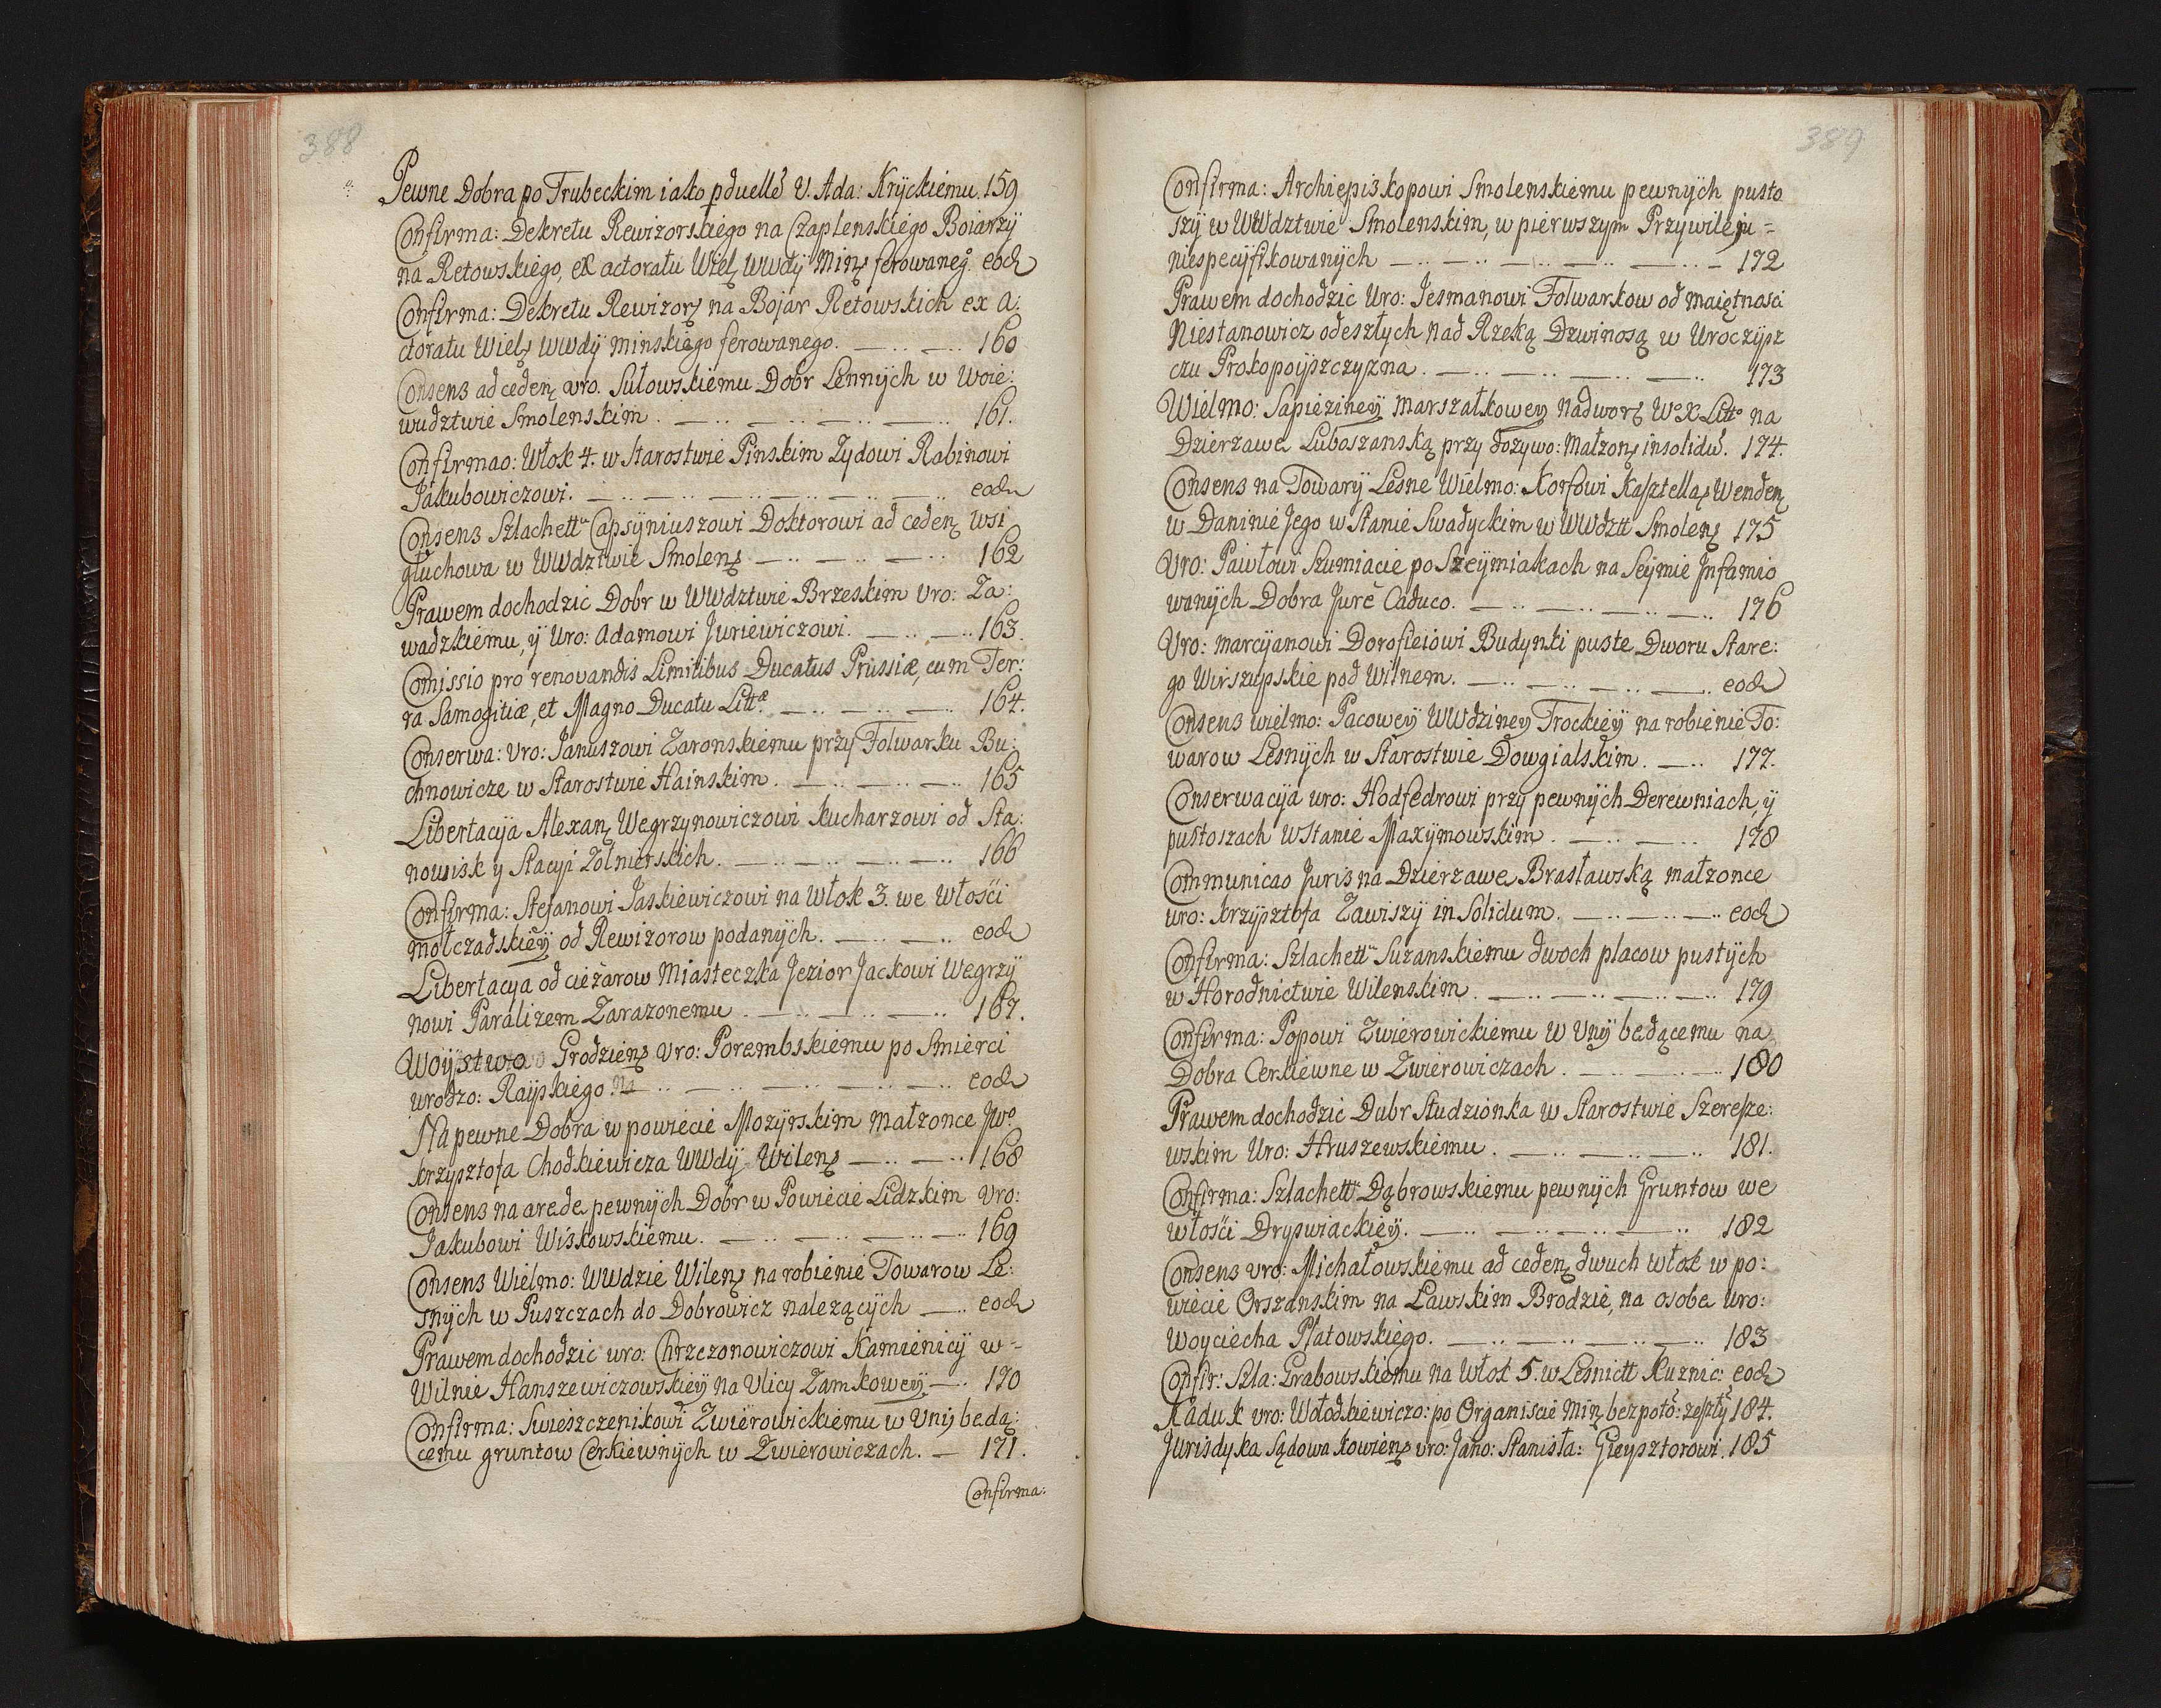 388
Pewne Dobra po Trubeckim iako pduellē V. Ada: Kryckiemu. 159
Confirma: Dekretu Rewizorskiego na Czaplenskiego Boiarzÿ
na Retowskiego, ex actoratu Wiel. WWdÿ Min. ferowaneg°. eod
Confirma: Dekretu Rewizor. na Bojar Retowskich ex A:
ctoratu Wiel. WWdÿ minskiego ferowanego. 160
Consens ad ceden. uro. Sułowskiemu Dobr Lennÿch w Woie:
wudztwie Smolenskim. 161.
Confirmao: Włok 4. w Starostwie Pinskim Zydowi Rabinowi
Jakubowiczowi. eod
Consens Szlachett Capsÿniuszowi Doktorowi ad ceden. Wsi
głuchowa w WWdztwie Smolen. 162
Prawem dochodzic Dobr w WWdztwie Brzeskim Vro: Za:
wadzkiemu, ÿ Uro: Adamowi Juriewiczowi. 163.
Comissio pro renovandis Limitibus Ducatus Prussiæ, cum Ter:
ra Samogitiæ, et Magno Ducatu Littæ. 164.
Conserwa: Vro: Januszowi Zaronskiemu przy Folwarku Bu:
chnowicze w Starostwie Hainskim. 165
Libertacÿa Alexan. Wegrzynowiczowi Kucharzowi od Sta:
nowisk y Stacÿi Zołnierskich. 166
Confirma: Stefanowi Jaskiewiczowi na Włok 3. we Włości
mołczadskieÿ od Rewizorow podanÿch. eod
Libertacya od cieżarow Miasteczka Jezior Jackowi Wegrzÿ
nowi Paralizem Zarazonemu. 167.
Woÿstwo Grodzien. Vro: Porembskiemu po Smierci
urodzo: Raÿskiego. na eod
Na pewne Dobra w powiecie Mozÿrskim Małzonce Jw°
krzysztofa Chodkiewicza WWdÿ Wilen. 168
Consens na arede pewnÿch Dobr w Powiecie Lidzkim Vro:
Jakubowi Wiskowskiemu. 169
Consens Wielmo: WWdzie Wilen. na robienie Towarow Le:
snÿch w Puszczach do Dobrowicz nalezącÿch eod
Prawem dochodzic uro: Chrzczonowiczowi Kamienicÿ w-
Wilnie Hanszewiczowskieÿ na Vlicy Zamkoweÿ 170
Confirma: Swieszczenikowi Zwierowickiemu w Vniÿ bedą:
cemu gruntow Cerkiewnÿch w Zwierowiczach. 171.
Confirma:
389
Confirma: Archiepiskopowi Smolenskiemu pewnÿch pusto
szÿ w WWdztwie Smolenskim, w pierwszym Przywileju-
niespecÿfikowanÿch 172
Prawem dochodzic Uro: Jesmanowi Folwarkow od maiętnosci
Niestanowicz odeszłych nad Rzeką Dzwinosą w Uroczÿsz
czu Prokopoÿszczyzna. 173
Wielmo: Sapiezineÿ marszałkoweÿ Nadwor. W°X Litt° na
Dzierzawe Luboszanską przy dożywo: Małzon. insolidū. 174.
Consens na Towarÿ Lesne Wielmo: Korfowi Kasztella. Wenden.
w Daninie Jego w Stanie Swadyckim w WWdztt Smolen. 175
Vro: Pawłowi Szumiacie po Szeÿmiakach na Seÿmie Infamio
wanÿch Dobra Jure Caduco. 176
Vro: marcÿanowi Dorofieiowi Budynki puste Dworu Stare:
go Wirszupskie pod Wilnem. eod
Consens wielmo: Pacoweÿ WWdzineÿ Trockieÿ na robienie To:
warow Lesnÿch w Starostwie Dowgialskim. 177.
Conserwacÿa uro: Hodfedrowi przy pewnÿch Derewniach, ÿ
pustoszach w Stanie Maxÿmowskim. 178
Communicao Juris na Dzierzawe Brasławską małzonce
uro: krzÿsztofa Zawiszÿ in Solidum. eod
Confirma: Szlachett Suzanskiemu dwoch placow pustÿch
w Horodnictwie Wilenskim. 179
Confirma: Popowi Zwierowickiemu w Vniÿ bedącemu na
Dobra Cerkiewne w Zwierowiczach. 180
Prawem dochodzic Dubr Studzionka w Starostwie Szeresze:
wskim Uro: Hruszewskiemu. 181.
Confirma: Szlachett Dąbrowskiemu pewnÿch Gruntow we
włości Drÿswiackieÿ. 182
Consens vro: Michałowskiemu ad ceden. dwuch włok w po:
wiecie Orszanskim na Ławskim Brodzie, na osobe Uro:
Woyciecha Płatowskiego. 183
Confir: Szla: Grabowskiemu na Włok 5. w Lesnictt Kuznic: eod
Kaduk vro: Wołodkiewiczo: po Organiscie Min. bezpoto: zeszły 184.
Jurisdyka Sądowa Kowien. vro: Jano: Stanisła: Gieysztorowi. 185